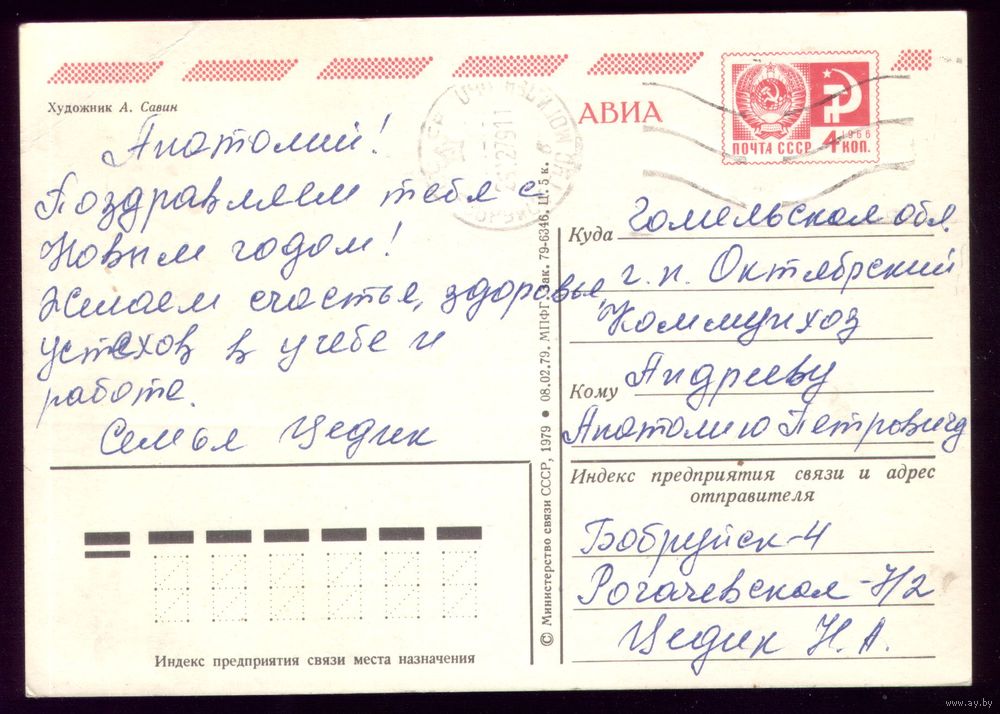 Художник А. Савин
АВИА
ПОЧТА СССР
1966
4 КОП.
Анатолий!
Поздравляем тебя с
Новым годом!
Желаем счастья, здоровья,
успехов в учебе и
работе.
Семья Цедик
Куда Гомельская обл.
г.п. Октябрский
Коммунхоз
Кому Андрееву
Анатолию Петровичу
Индекс предприятия связи и адрес
отправителя
Бобруйск-4
Рогачевская-
Цедик Н.А.
Индекс предприятия связи места назначения
© Министерство связи СССР, 1979 ● 08.02.79. МПФГ. Зак. 79-6346. Ц. 5 к.
www.ay.by